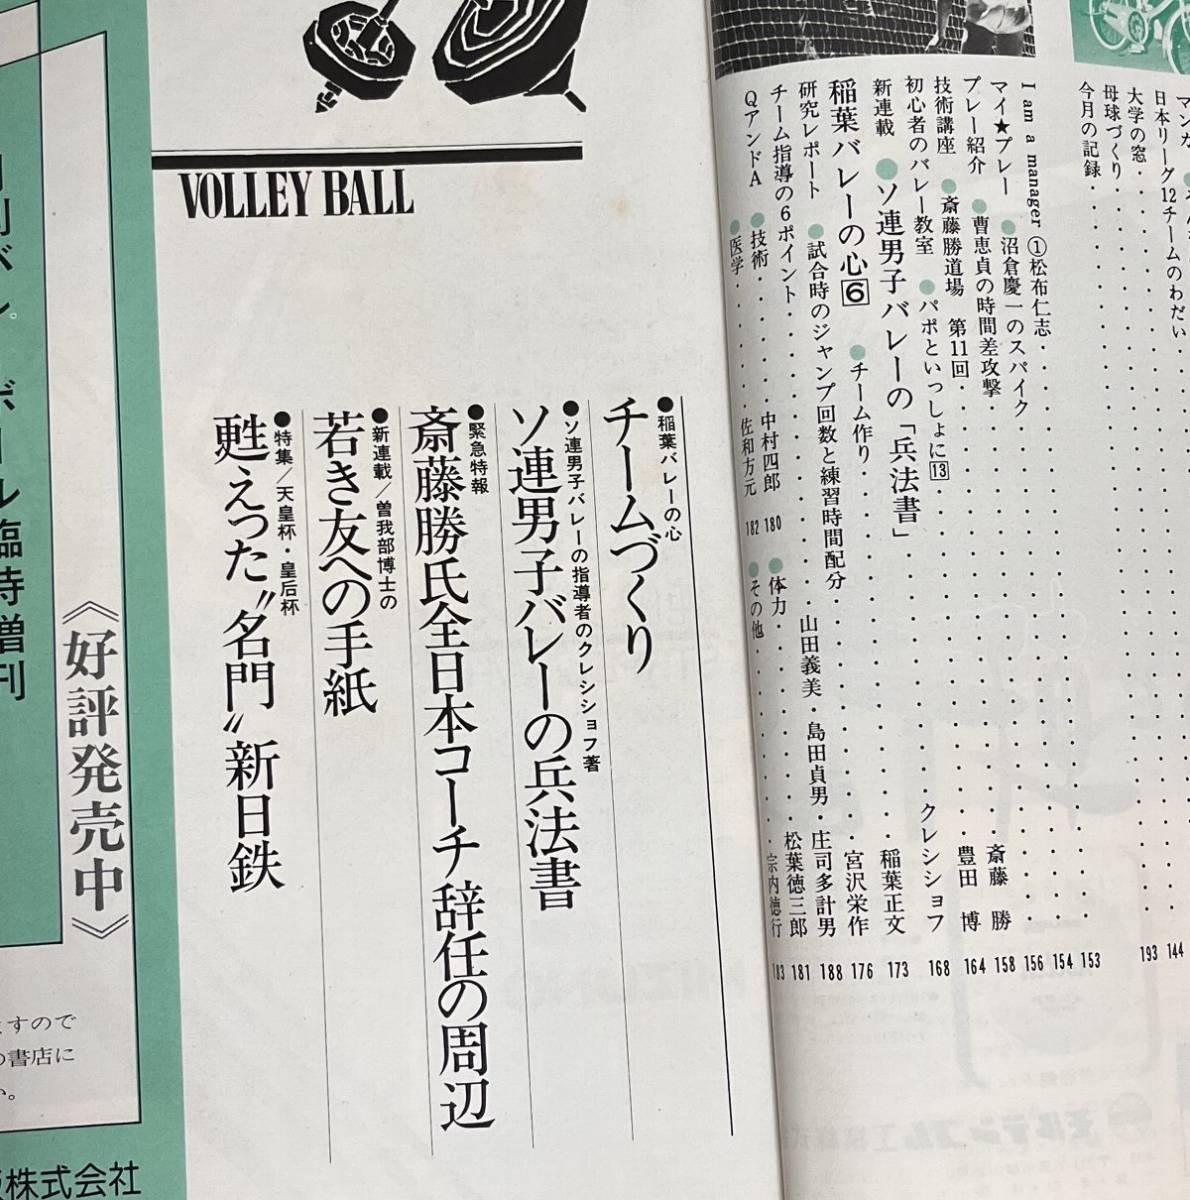 今月の記録
母球づくり
大学の窓
日本リーグ12チームのわだい
193
144
I am a manager ①松布仁志 153
マイ★プレー ●沼倉慶一のスパイク 154
プレー紹介 ●曹恵貞の時間差攻撃 156
技術講座 ●斎藤勝道場 第11回 斎藤 勝 158
初心者のバレー教室 ●パポといっしょに13 豊田 博 164
新連載 ●ソ連男子バレーの「兵法書」 クレシショフ 168
稲葉バレーの心6 ●チーム作り 稲葉正文 173
研究レポート ●試合時のジャンプ回数と練習時間配分 宮沢栄作 176
チーム指導の6ポイント 山田義美・島田貞男・庄司多計男 188
QアンドA ●技術 中村四郎 180 ●体力 松葉徳三郎 181
●医学 佐和方元 182 ●その他 宗内徳行 183
VOLLEY BALL
●稲葉バレーの心
チームづくり
●ソ連男子バレーの指導者のクレシショフ著
ソ連男子バレーの兵法書
●緊急特報
斎藤勝氏全日本コーチ辞任の周辺
●新連載/曽我部博士の
若き友への手紙
●特集/天皇杯・皇后杯
甦えった〝名門〟新日鉄
ボール臨時増刊
《好評発売中》
ますので
の書店に
い。
版株式会社